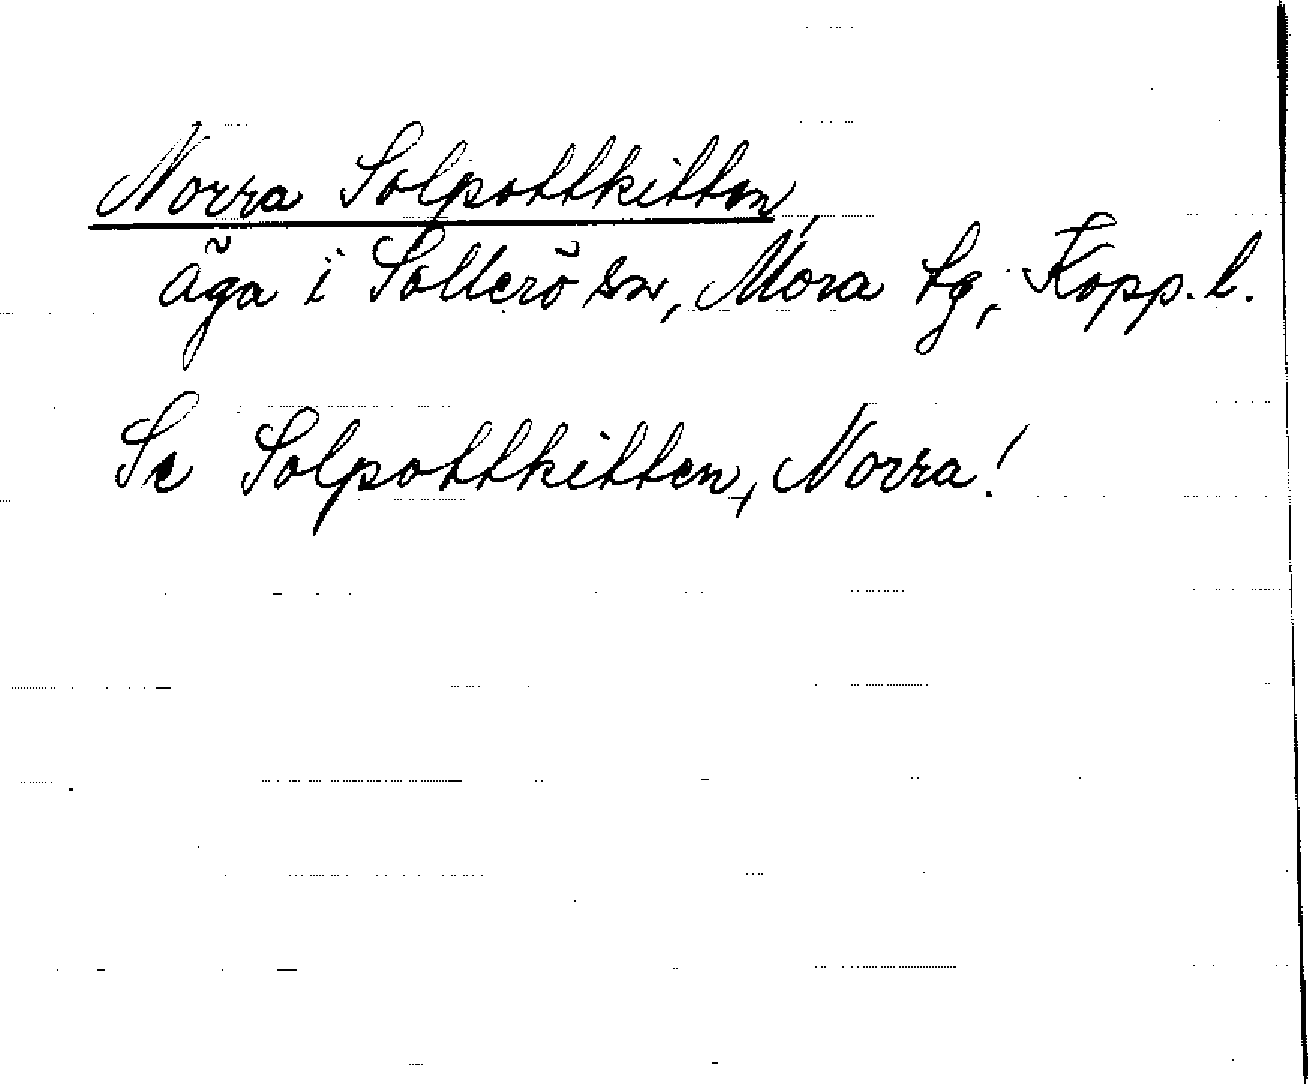 Norra Solpottkitten,
äga i Sollerö sn, Mora tg, Kopp. l.
Se Solpottkitten, Norra!